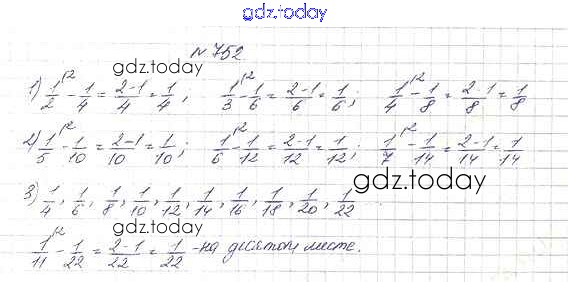 gdz.today
N 752
gdz.today
1) 1/2\2 - 1/4 = (2-1)/4 = 1/4; 1/3\2 - 1/6 = (2-1)/6 = 1/6; 1/4\2 - 1/8 = (2-1)/8 = 1/8
gdz.today
2) 1/5\2 - 1/10 = (2-1)/10 = 1/10; 1/6 - 1/12 = (2-1)/12 = 1/12; 1/7\2 - 1/14 = (2-1)/14 = 1/14
gdz.today
3) 1/4, 1/6, 1/8, 1/10, 1/12, 1/14, 1/16, 1/18, 1/20, 1/22
1/11\2 - 1/22 = (2-1)/22 = 1/22 - на десятом месте.